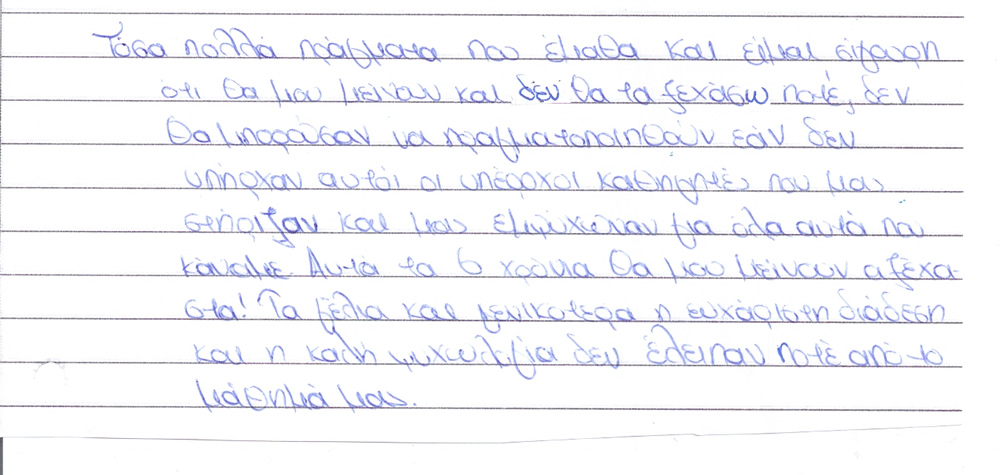 Τόσα πολλά πράγματα που έμαθα και είμαι σίγουρη
ότι θα μου μείνουν και δεν θα τα ξεχάσω ποτέ, δεν
θα μπορούσαν να πραγματοποιηθούν εάν δεν
υπήρχαν αυτοί οι υπέροχοι καθηγητές που μας
στήριζαν και μας εμψύχωναν για όλα αυτά που
κάναμε. Αυτά τα 6 χρόνια θα μου μείνουν αξέχα-
στα! Τα γέλια και γενικότερα η ευχάριστη διάθεση
και η καλή ψυχολογία δεν έλειπαν ποτέ από το
μάθημά μας.